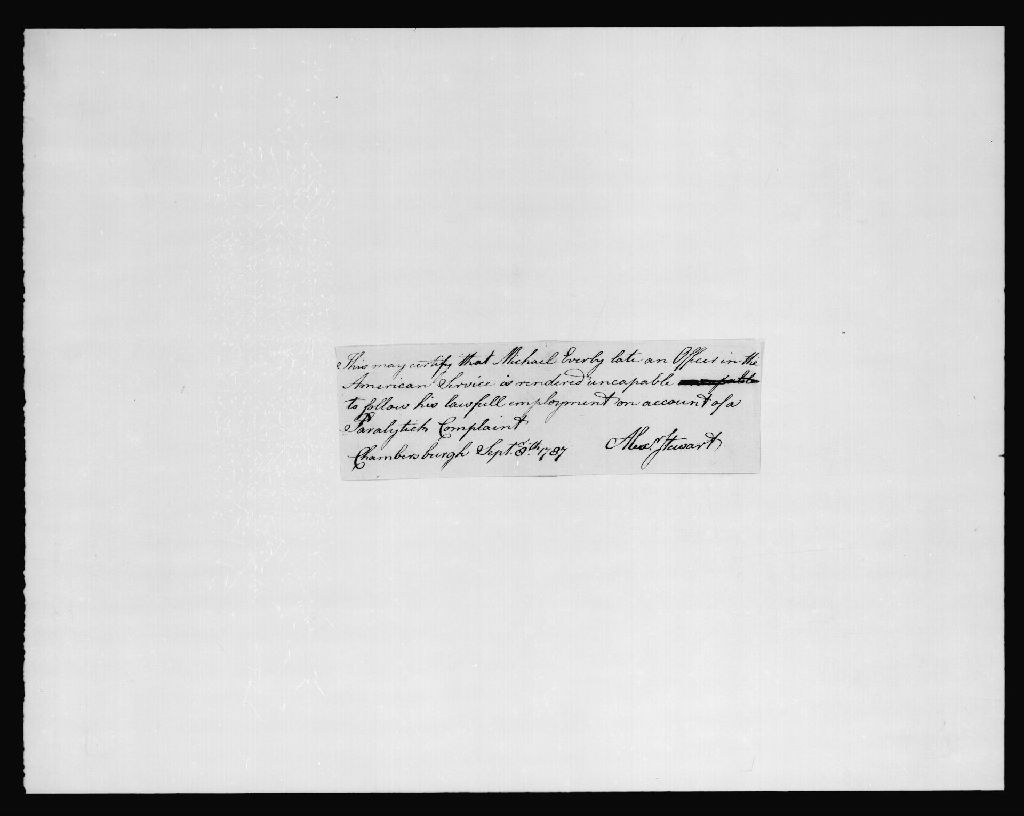 This may certify that Michael Everly late an Officer in the
American Service is rendered uncapable
to follow his lawfull employment on account of a
Paralytick Complaint
Chambersburgh Sept.r 8th 1787 Alexr Stewart